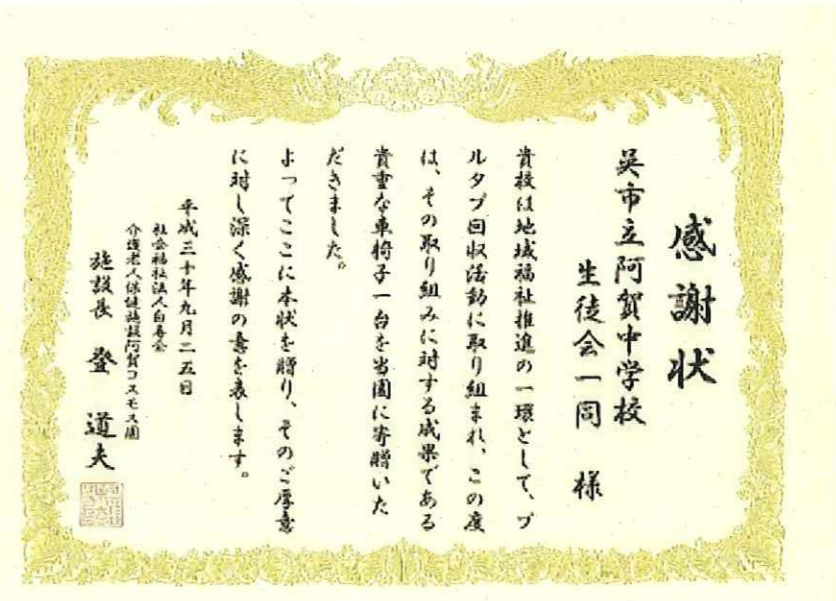 感謝状
呉市立阿賀中学校
生徒会一同 様
貴校は地域福祉推進の一環として、プ
ルタブ回収活動に取り組まれ、この度
は、その取り組みに対する成果である
貴重な車椅子一台を当園に寄贈いた
だきました。
よってここに本状を贈り、そのご厚意
に対し深く感謝の意を表します。
平成三十年九月二五日
社会福祉法人白寿会
介護老人保健施設阿賀コスモス園
施設長 登 道夫